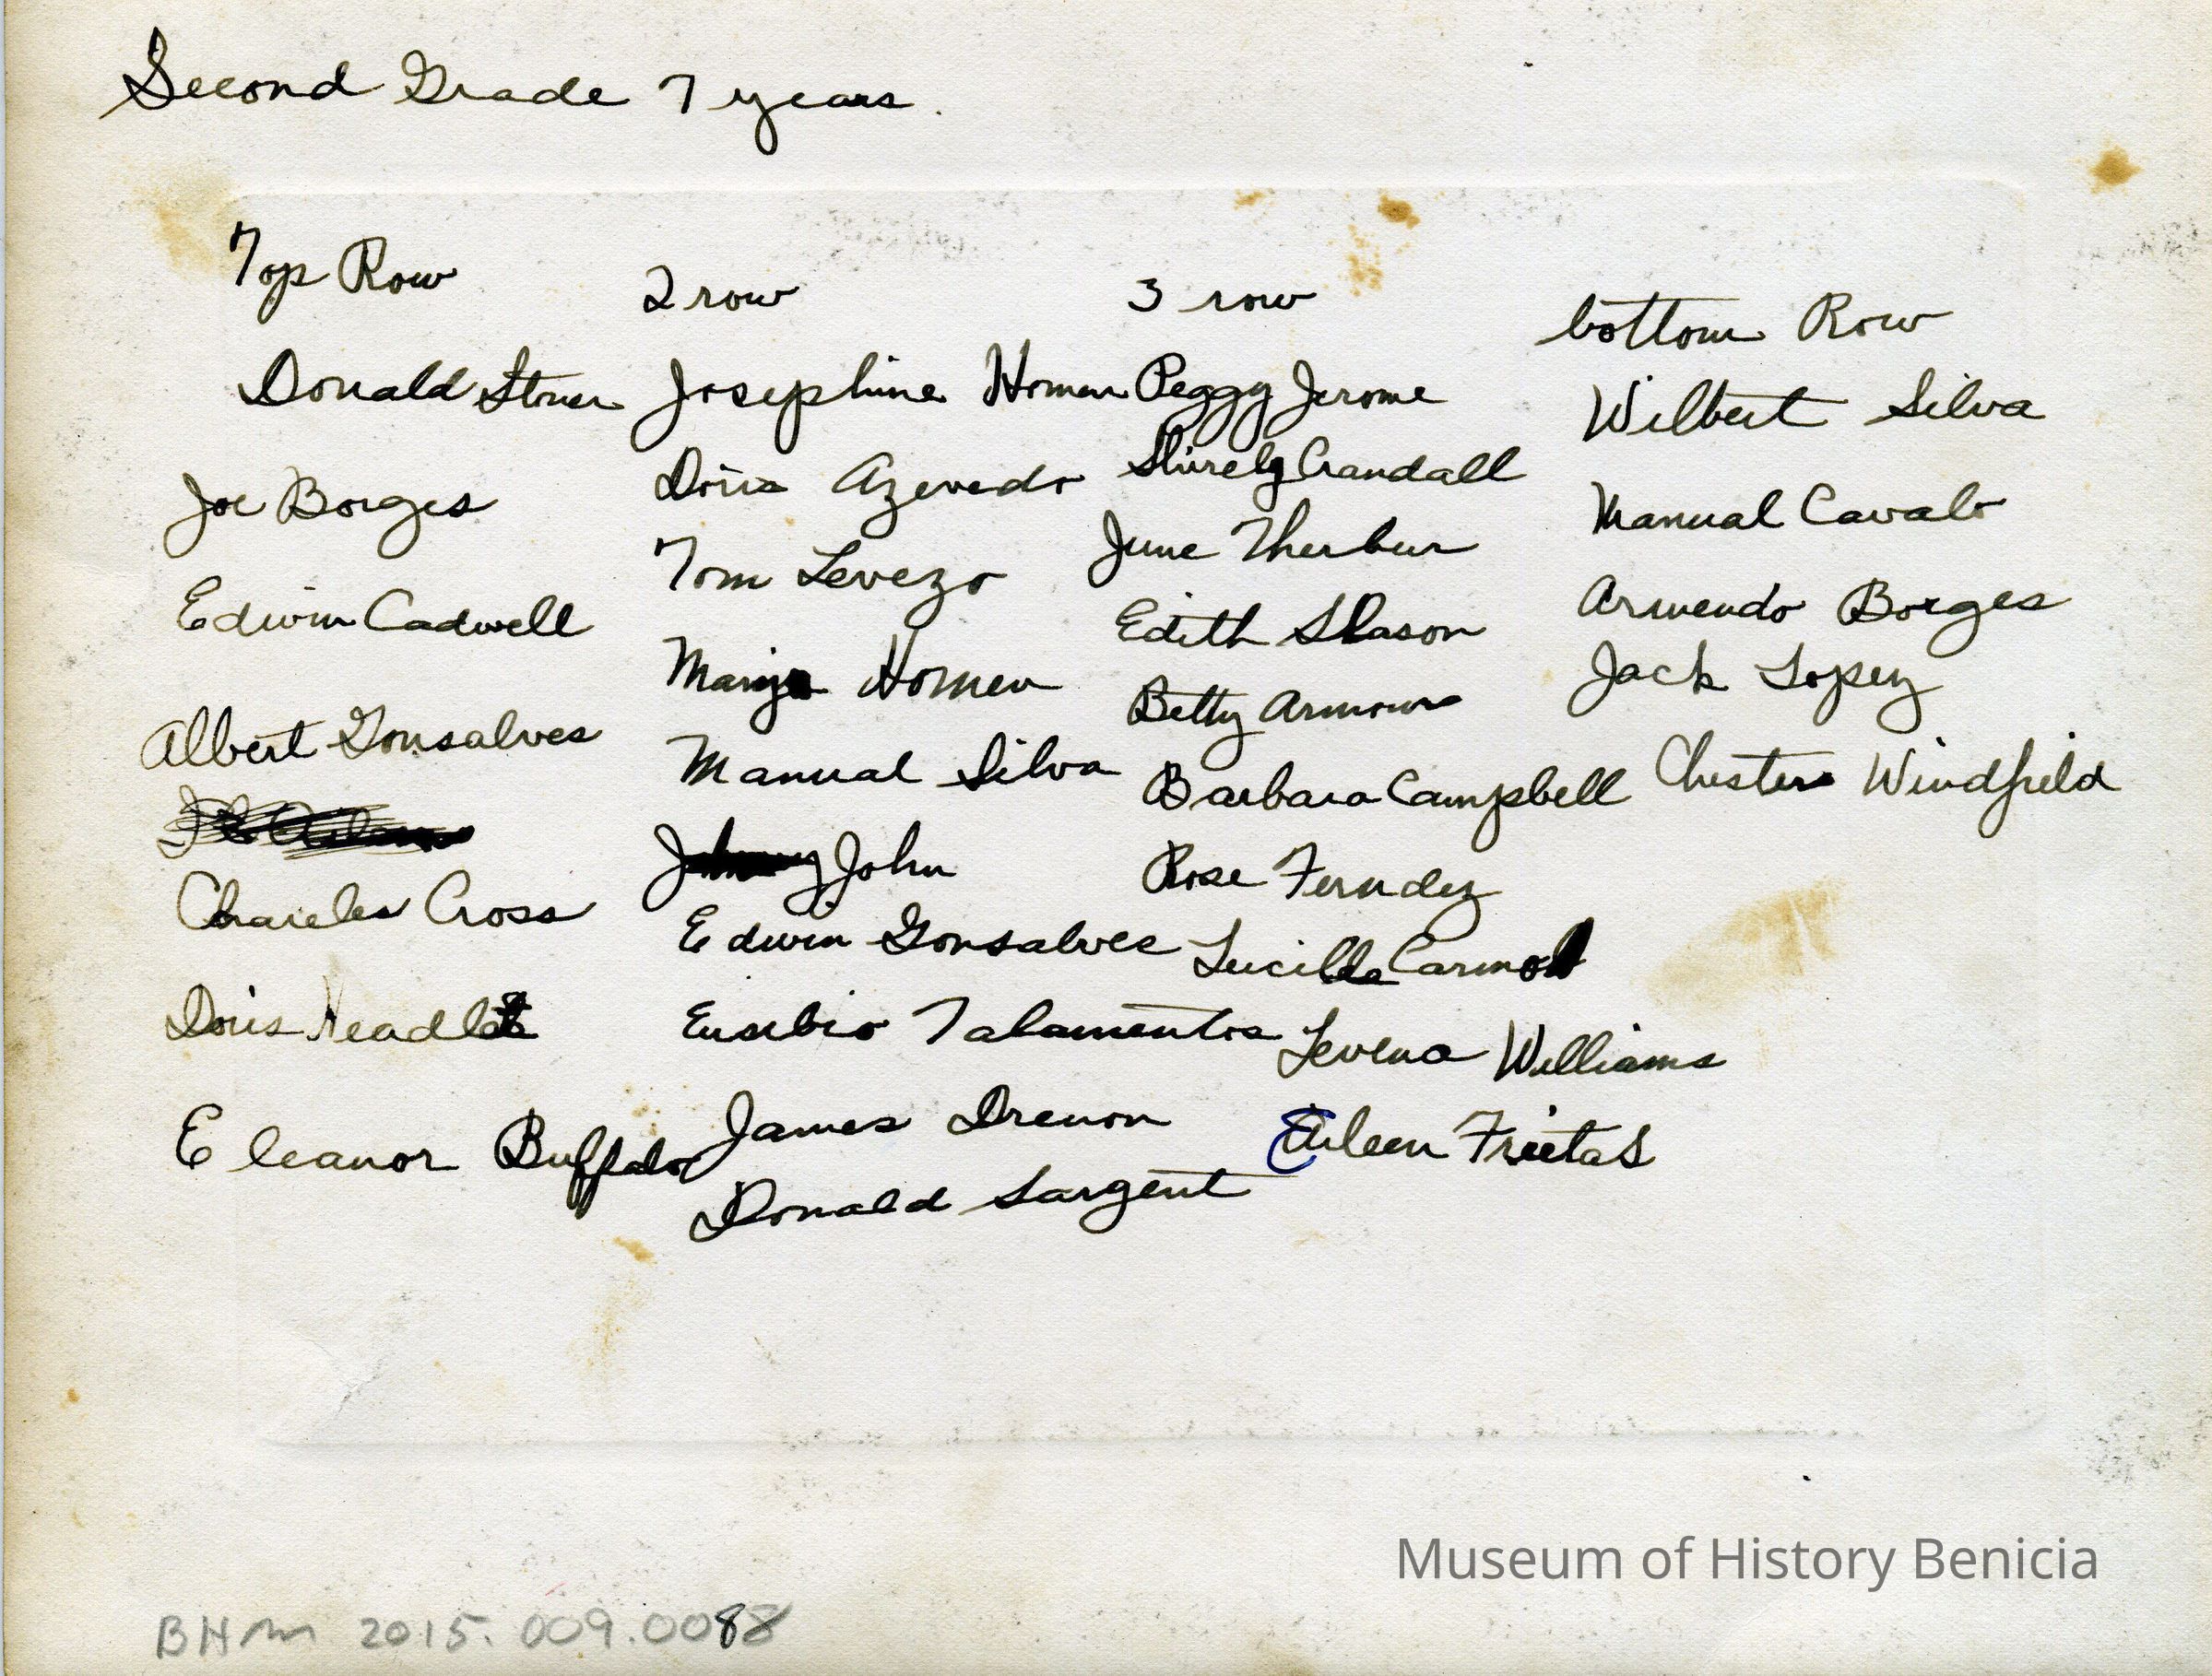 Second Grade 7 years.
Top Row
Donald Stoner
Joe Borges
Edwin Cadwell
Albert Gonsalves
Charles Cross
Doris Headlet
Eleanor Buffalo
2 row
Josephine Homen
Doris Azevedo
Tom Levezo
Homen
Manual Silva
John
Edwin Gonsalves
Eusebio Talamentes
James Drenon
Donald Sargent
3 row
Peggy Jerome
Shirely Crandall
June Therbur
Edith Slason
Betty Armour
Barbara Campbell
Rose Ferndez
Lucille
Levena Williams
Eileen Frietas
bottom Row
Wilbert Silva
Manual Cavalo
Armendo Borges
Jack Lopez
Chester Windfield
Museum of History Benicia
BHM 2015.009.0088